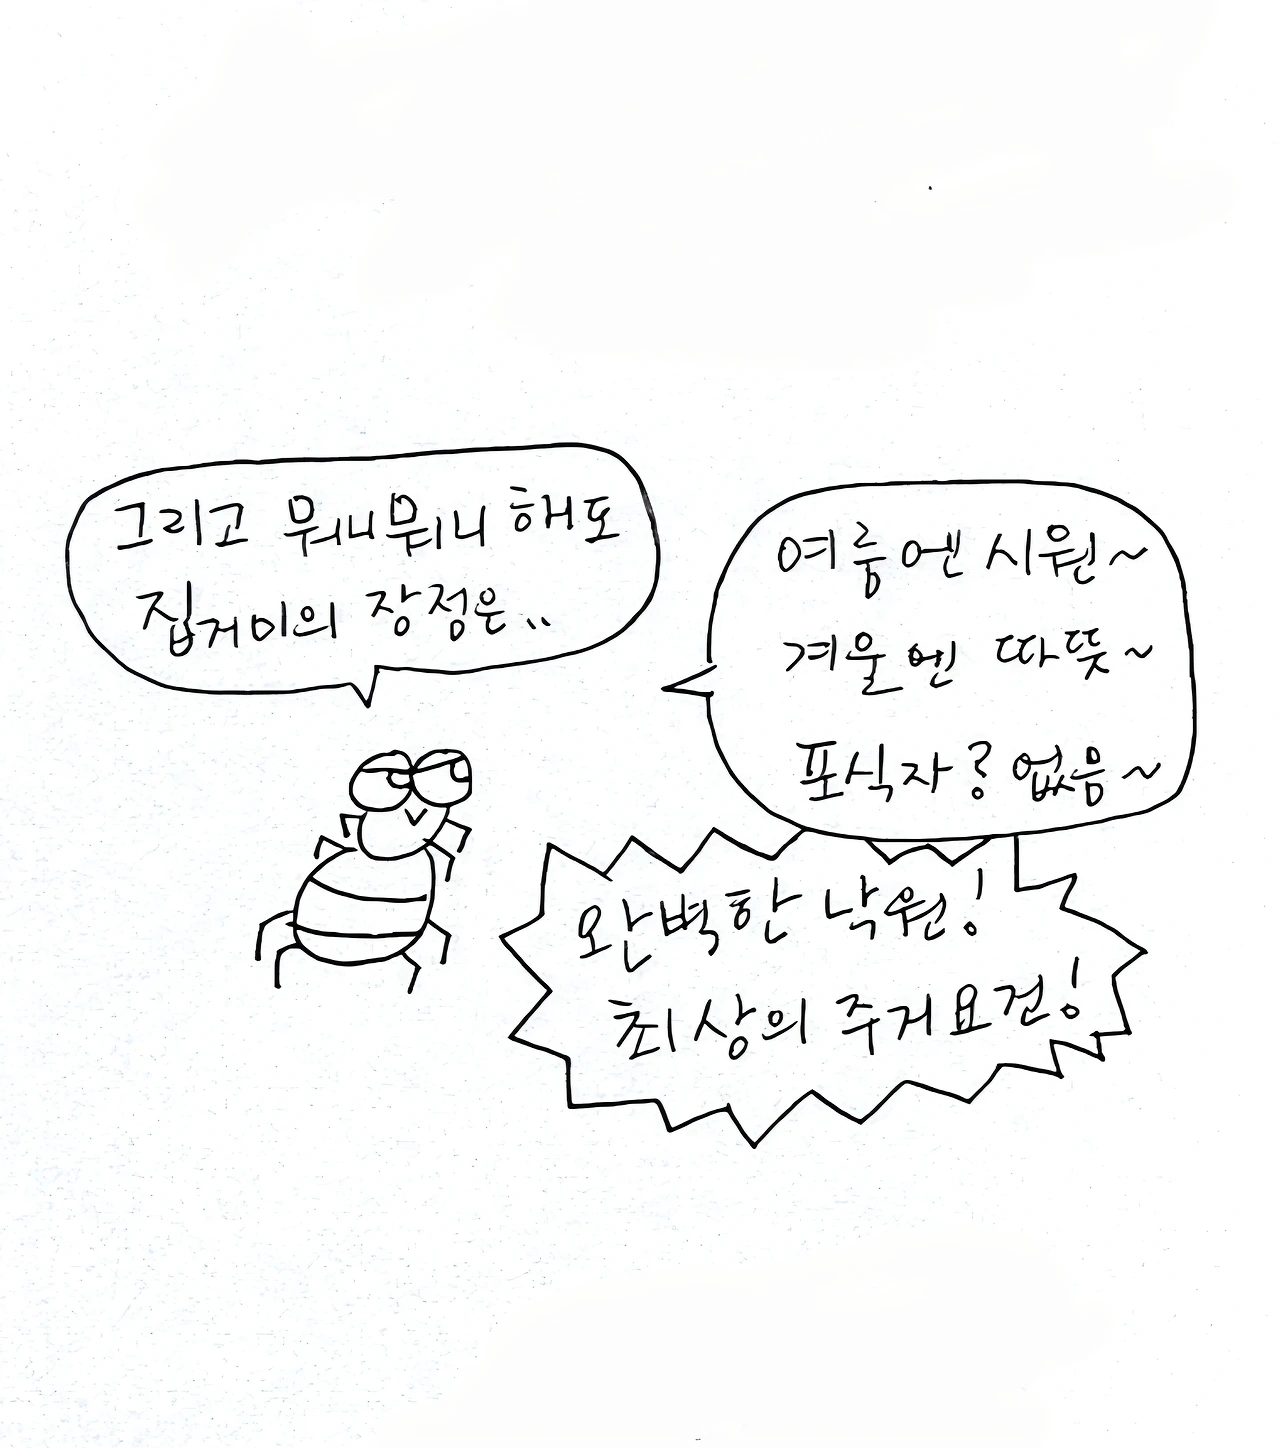 그리고 뭐니뭐니 해도
집거미의 장점은..
여름엔 시원~
겨울엔 따뜻~
포식자? 없음~
완벽한 낙원!
최상의 주거요건!